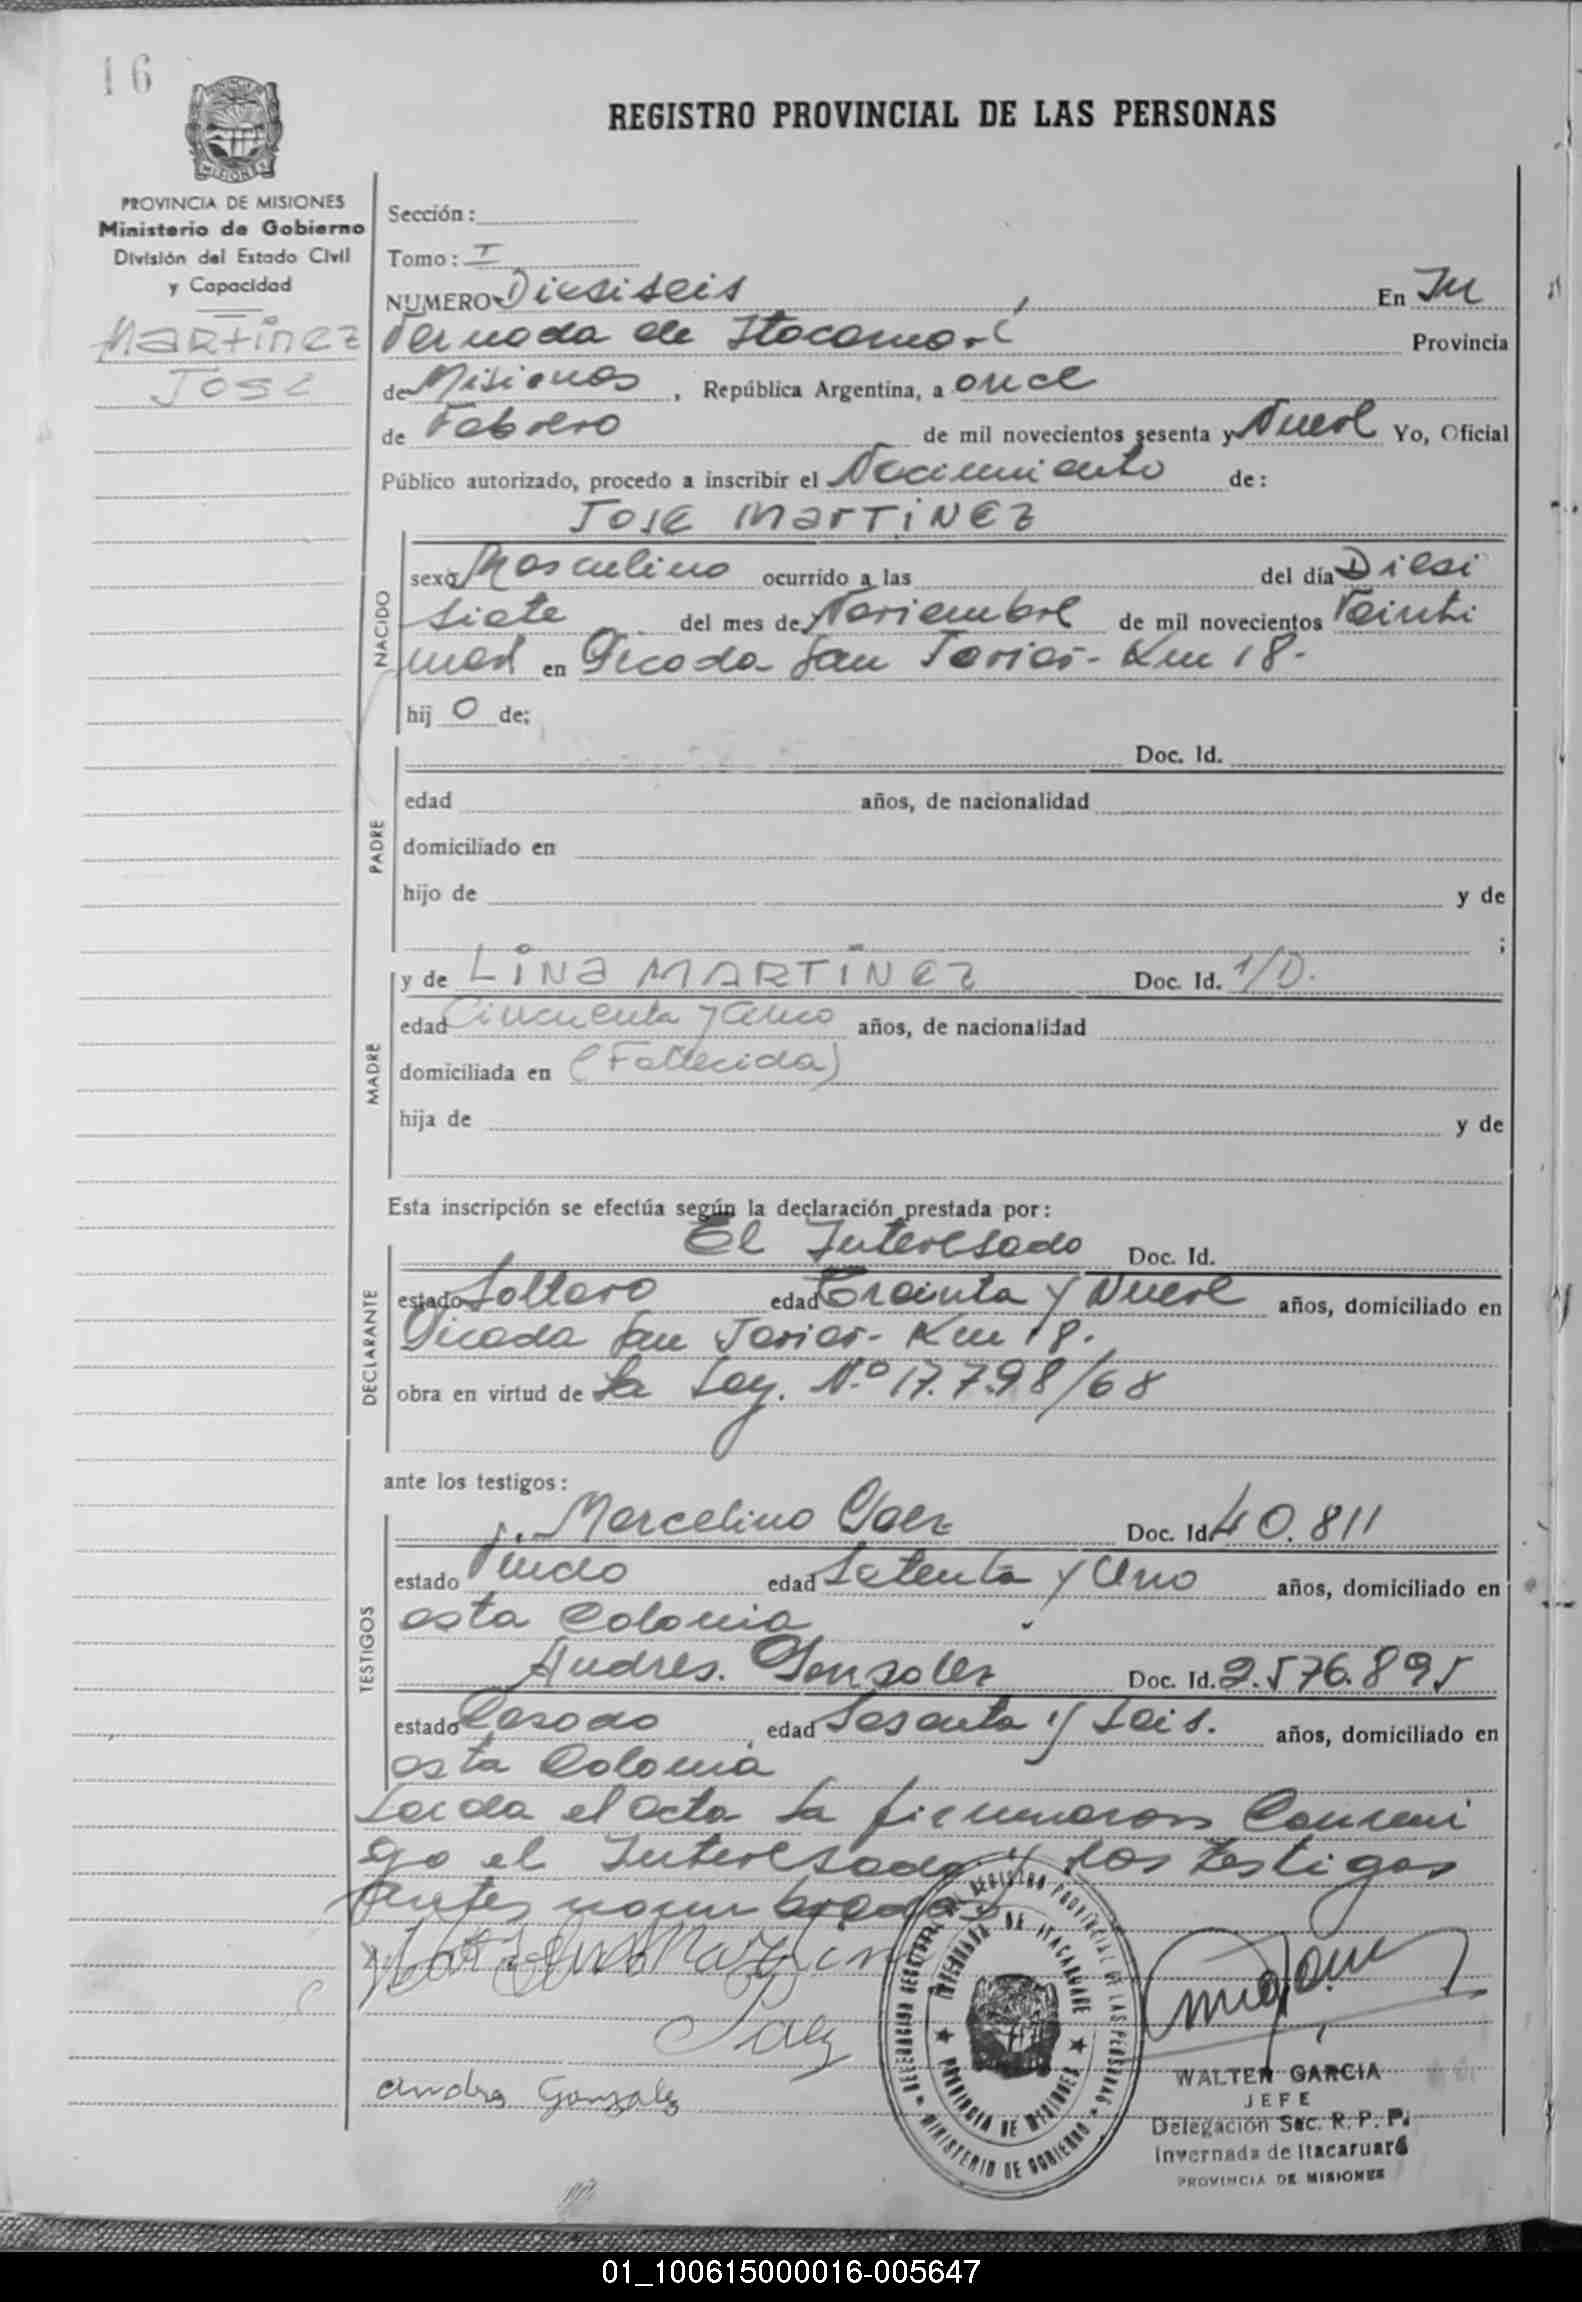 16
REGISTRO PROVINCIAL DE LAS PERSONAS
PROVINCIA DE MISIONES
Ministerio de Gobierno
División del Estado Civil
y Capacidad
Martinez
Jose
Sección:
Tomo: I
NUMERO Diesiseis En In
vernada de Itacaruaré Provincia
de Misiones, República Argentina, a once
de Febrero de mil novecientos sesenta y Nueve Yo, Oficial
Público autorizado, procedo a inscribir el Nacimiento de:
JOSE MARTINEZ
NACIDO
sexo Masculino ocurrido a las del día Diesi
siete del mes de Noviembre de mil novecientos Veinti
nueve en Picada San Javier - Km 18 -
hij o de:
PADRE
Doc. Id.
edad años, de nacionalidad
domiciliado en
hijo de y de
;
MADRE
y de LINA MARTINEZ Doc. Id. 1/D.
edad Cincuenta y Cinco años, de nacionalidad
domiciliada en (Fallecida)
hija de y de
Esta inscripción se efectúa según la declaración prestada por:
El Interesado Doc. Id.
DECLARANTE
estado Soltero edad Treinta y Nueve años, domiciliado en
Picada San Javier - Km 18.
obra en virtud de La Ley. Nº 17.798/68
ante los testigos:
TESTIGOS
Marcelino Paez Doc. Id. 40.811
estado Viudo edad Setenta y Uno años, domiciliado en
esta Colonia
Andres. Gonzalez Doc. Id. 2.576.895
estado Casado, edad Sesenta y Seis. años, domiciliado en
esta Colonia
Leida el acta La firmaron Conmi
go el Interesado y los testigos
antes nombrados
Paez
andres Gonzalez
DELEGACION SECCIONAL DEL REGISTRO PROVINCIAL DE LAS PERSONAS
INVERNADA DE ITACARUARE
PROVINCIA DE MISIONES
MINISTERIO DE GOBIERNO
WALTER GARCIA
JEFE
Delegación Sec. R. P. P.
Invernada de Itacaruaré
PROVINCIA DE MISIONES
01_100615000016-005647